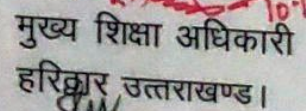 मुख्य शिक्षा अधिकारी
हरिद्वार उत्तराखण्ड।